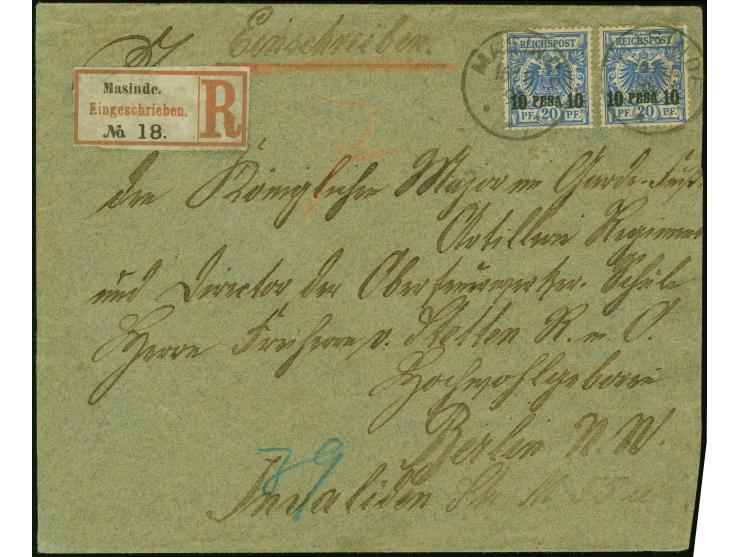 Einschreiben.
Masinde.
Eingeschrieben.
No 18.
R
REICHSPOST
10 PESA 10
PF. 20 PF.
REICHSPOST
10 PESA 10
PF. 20 PF.
den Königlichen Major im Garde-Fuß-
Artillerie Regiment
und Director der Oberfeuerwerker-Schule
Herrn Freiherr v. Stetten R. m. O.
Hochwohlgeboren
Berlin N. W.
Invaliden Str. N. 55 a
79